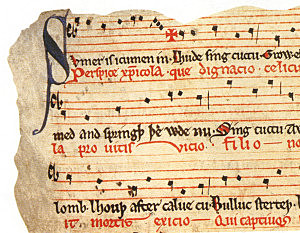 Sumer is icumen in· Lhude sing cuccu· Growe
Perspice xpicola· que dignacio· celicu
med and springþ þe wde nu· Sing cuccu
la pro uitis vicio· filio no
lomb· lhouþ after calue cu· Bulluc sterteþ·
it· mortis exicio· Qui captiuos